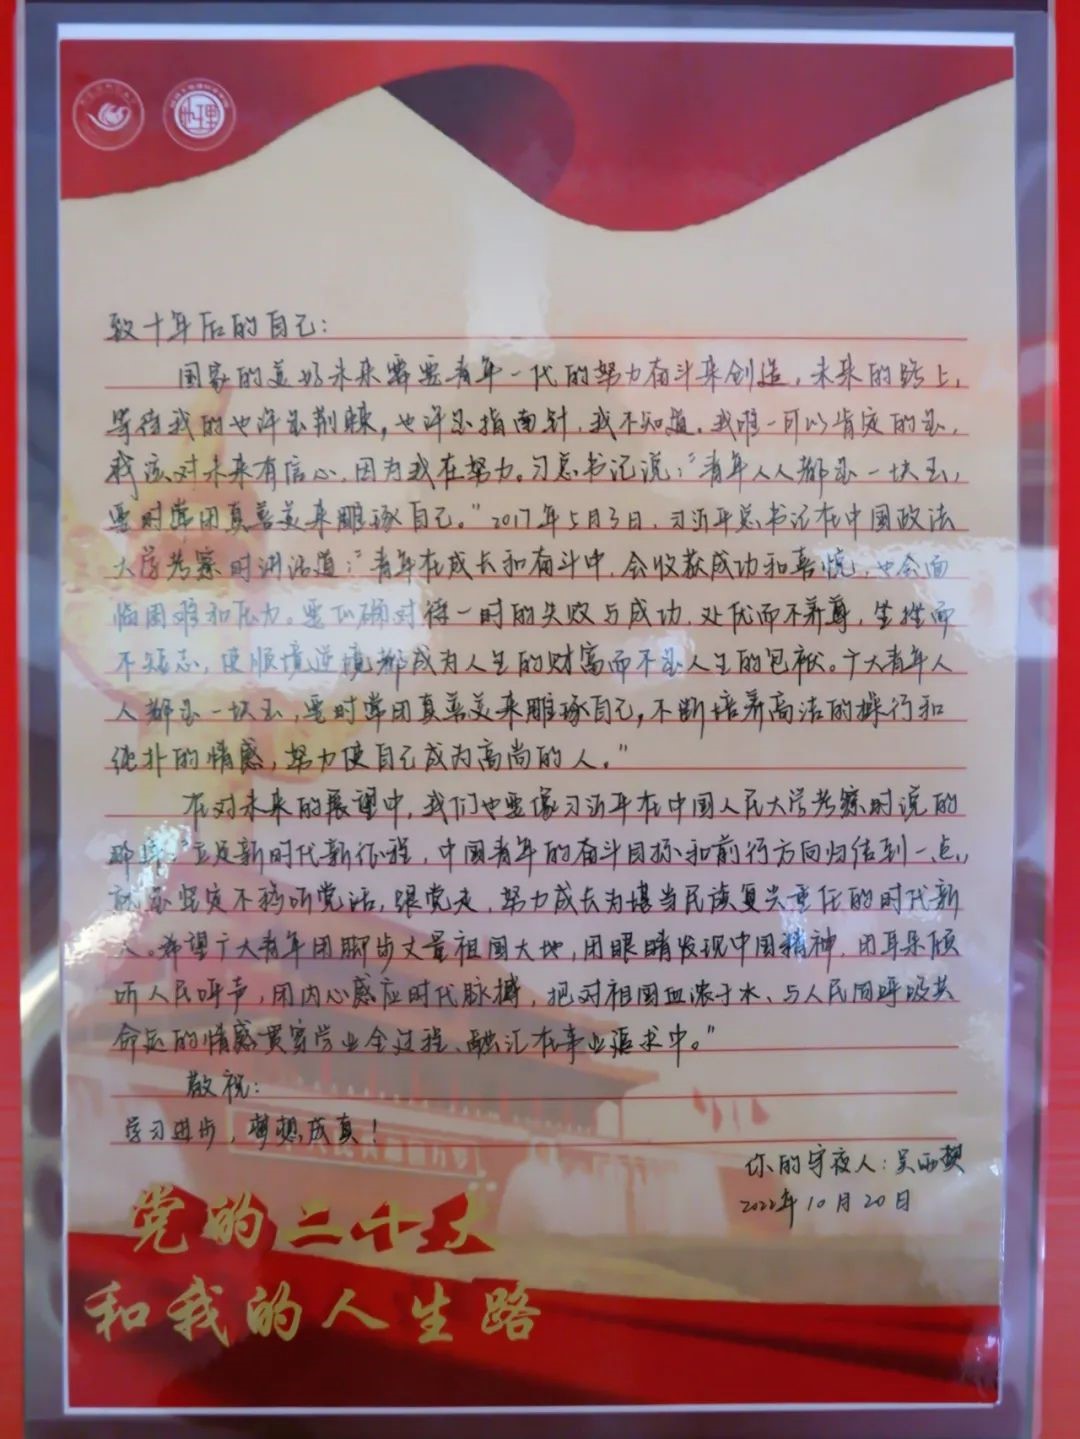 地理
致十年后的自己：
国家的美好未来需要青年一代的努力奋斗来创造，未来的路上，
等待我的也许是荆棘，也许是指南针，我不知道。我唯一可以肯定的是，
我应对未来有信心，因为我在努力。习总书记说：“青年人人都是一块玉，
要时常用真善美来雕琢自己。”2017年5月3日，习近平总书记在中国政法
大学考察时讲话道：“青年在成长和奋斗中，会收获成功和喜悦，也会面
临困难和压力。要正确对待一时的失败与成功，处优而不养尊，坐挫而
不短志，使顺境逆境都成为人生的财富而不是人生的包袱。广大青年人
人都是一块玉，要时常用真善美来雕琢自己，不断培养高洁的操行和
纯朴的情感，努力使自己成为高尚的人。”
在对未来的展望中，我们也要像习近平在中国人民大学考察时说的
那样“立足新时代新征程，中国青年的奋斗目标和前行方向归结到一点，
就是坚定不移听党话，跟党走，努力成长为堪当民族复兴重任的时代新
人。希望广大青年用脚步丈量祖国大地，用眼睛发现中国精神，用耳朵倾
听人民呼声，用内心感应时代脉搏，把对祖国血浓于水、与人民同呼吸共
命运的情感贯穿学业全过程、融汇在事业追求中。”
敬祝：
学习进步，梦想成真！
你的守夜人：吴
2022年10月20日
党的二十大
和我的人生路